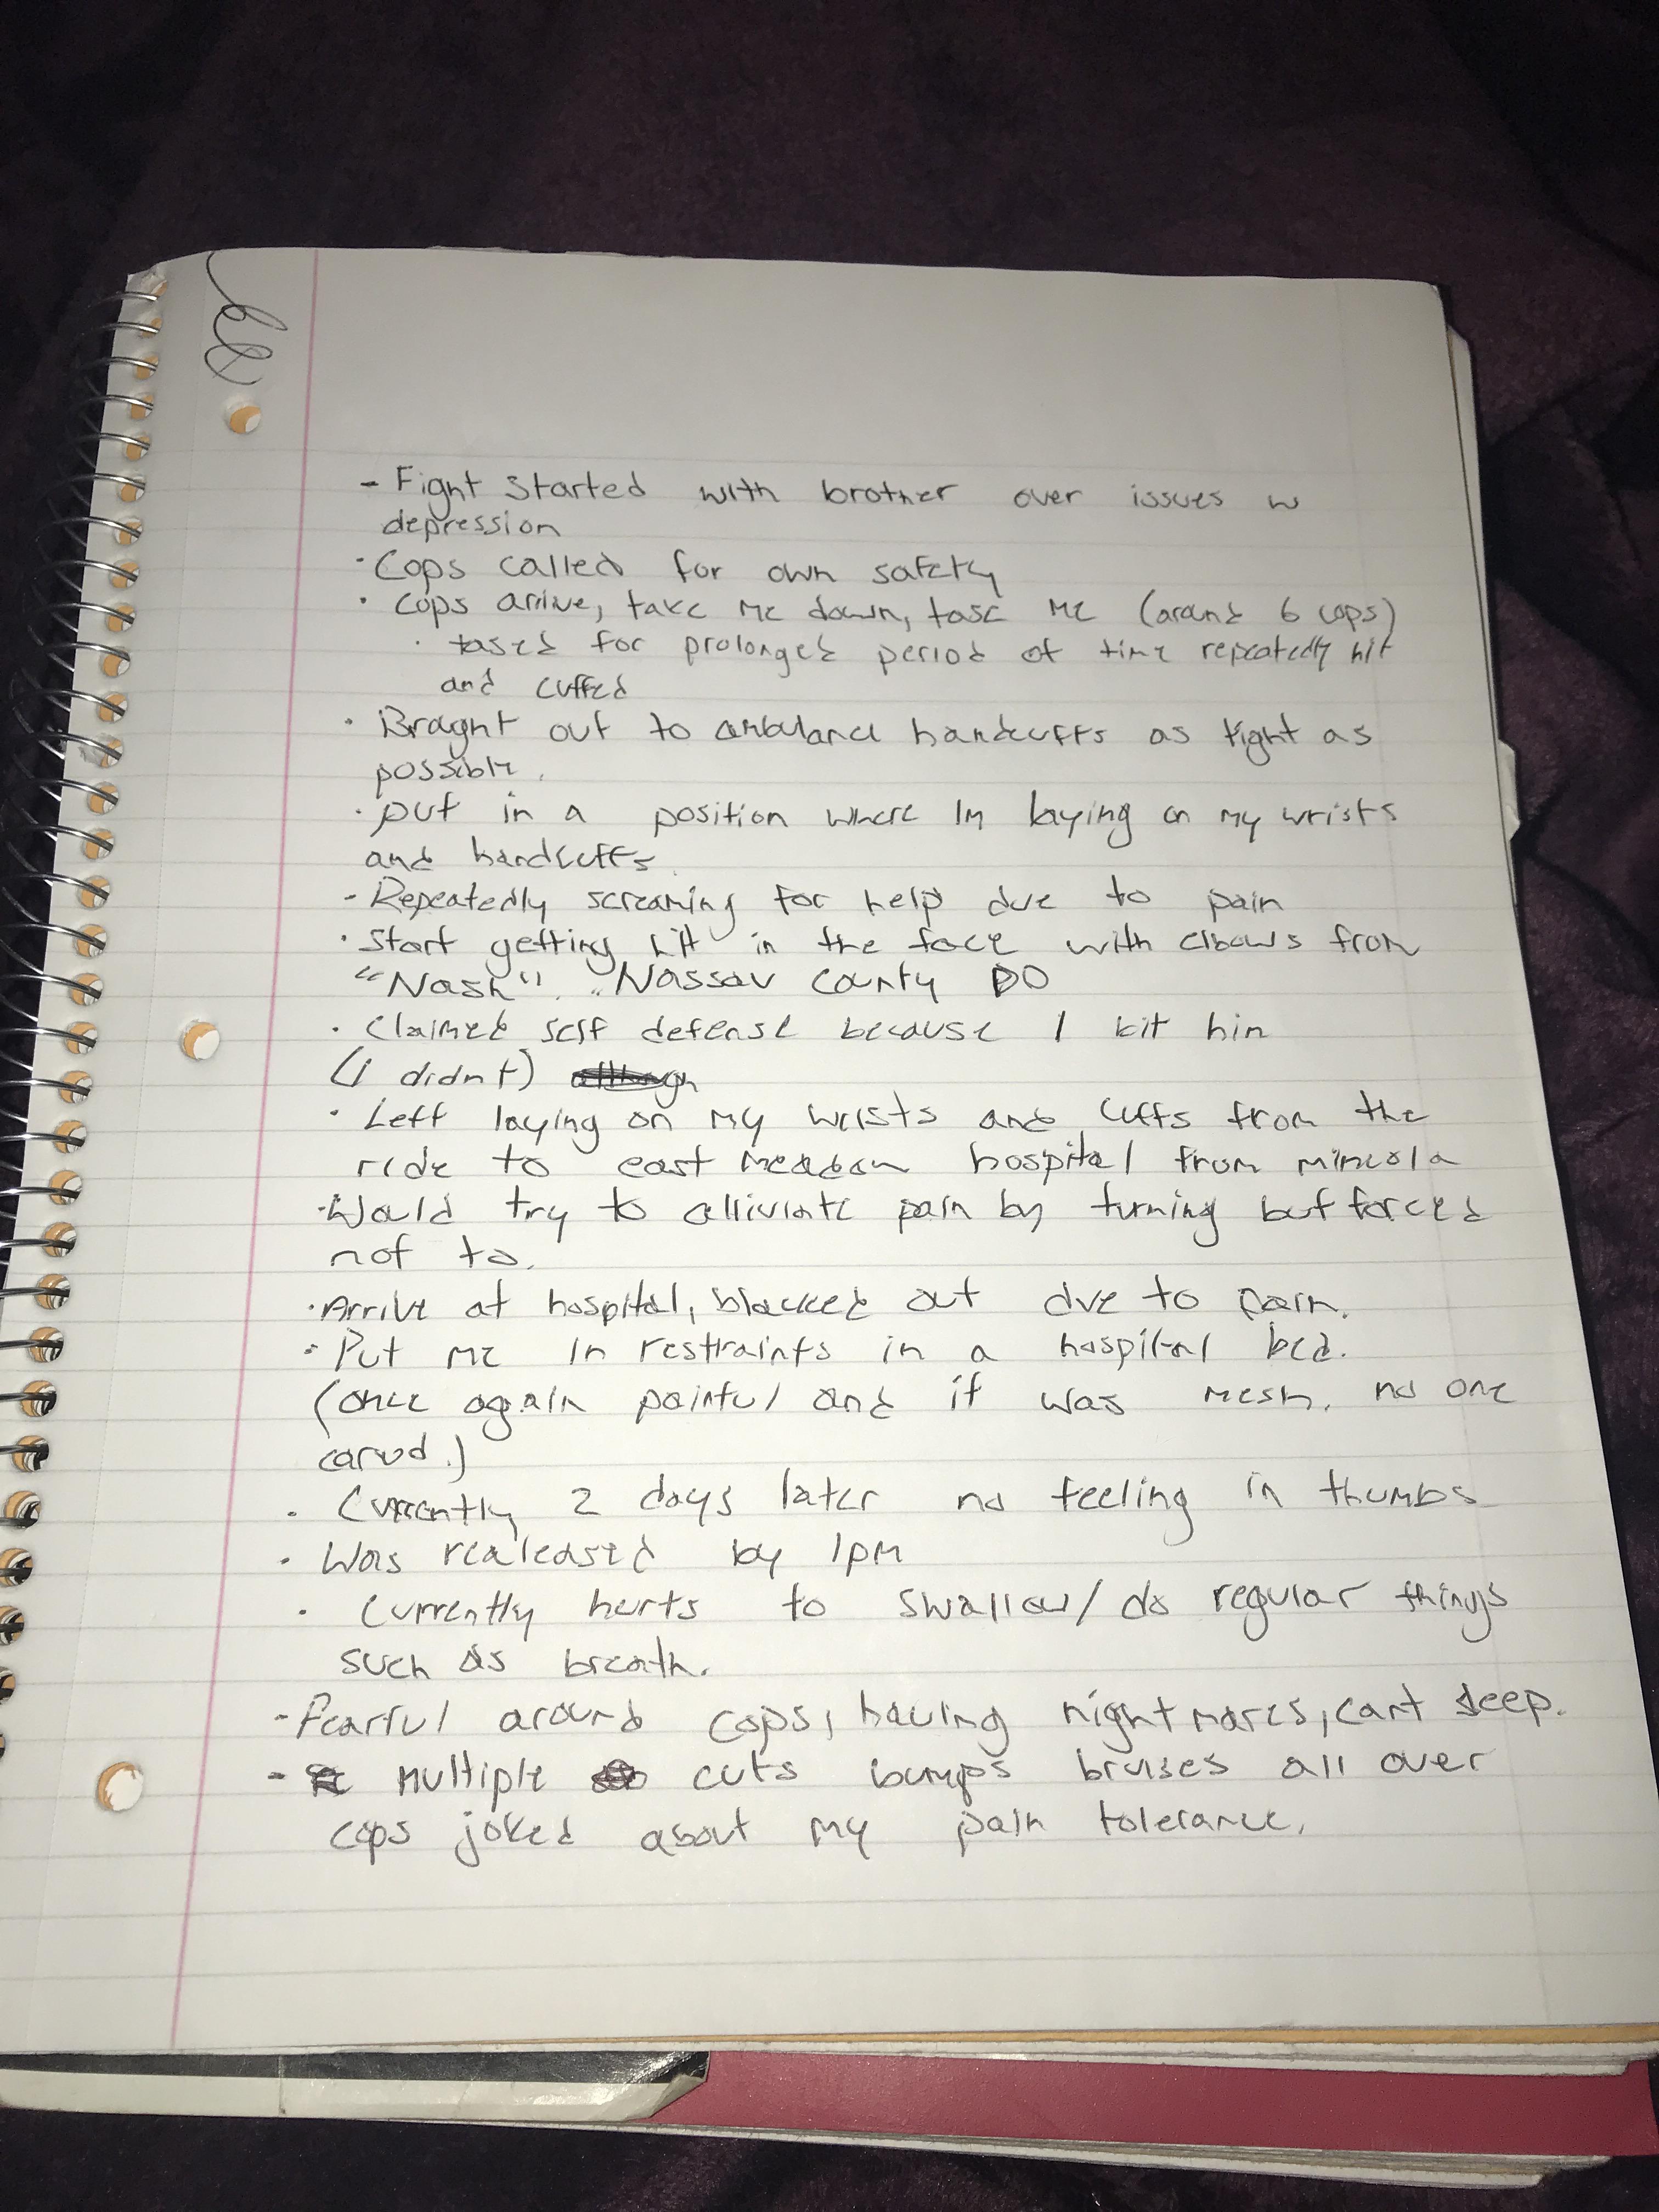 - Fight Started with brother over issues w
depression
· Cops called for own safety
· Cops arrive, take me down, tase me (around 6 cops)
· tased for prolonged period of time repeatedly hit
and cuffed
· Brought out to ambulance handcuffs as tight as
possible.
· put in a position where Im laying on my wrists
and handcuffs.
- Repeatedly screaming for help due to pain
· Start getting hit in the face with elbows from
"Nash". Nassau County PO
· Claimed self defense because I bit him
(I didnt) although
· Left laying on my wrists and cuffs from the
ride to east meadow hospital from mineola
· Would try to alliviate pain by turning but forced
not to.
· Arrive at hospital, blacked out due to pain.
· Put me in restraints in a hospital bed.
(once again painful and it was mesh. no one
cared.)
· Currently 2 days later no feeling in thumbs
· Was realeased by 1pm
· Currently hurts to swallow/ do regular things
such as breath.
- Fearful around cops, having nightmares, cant sleep.
- multiple cuts bumps bruises all over
cops joked about my pain tolerance.